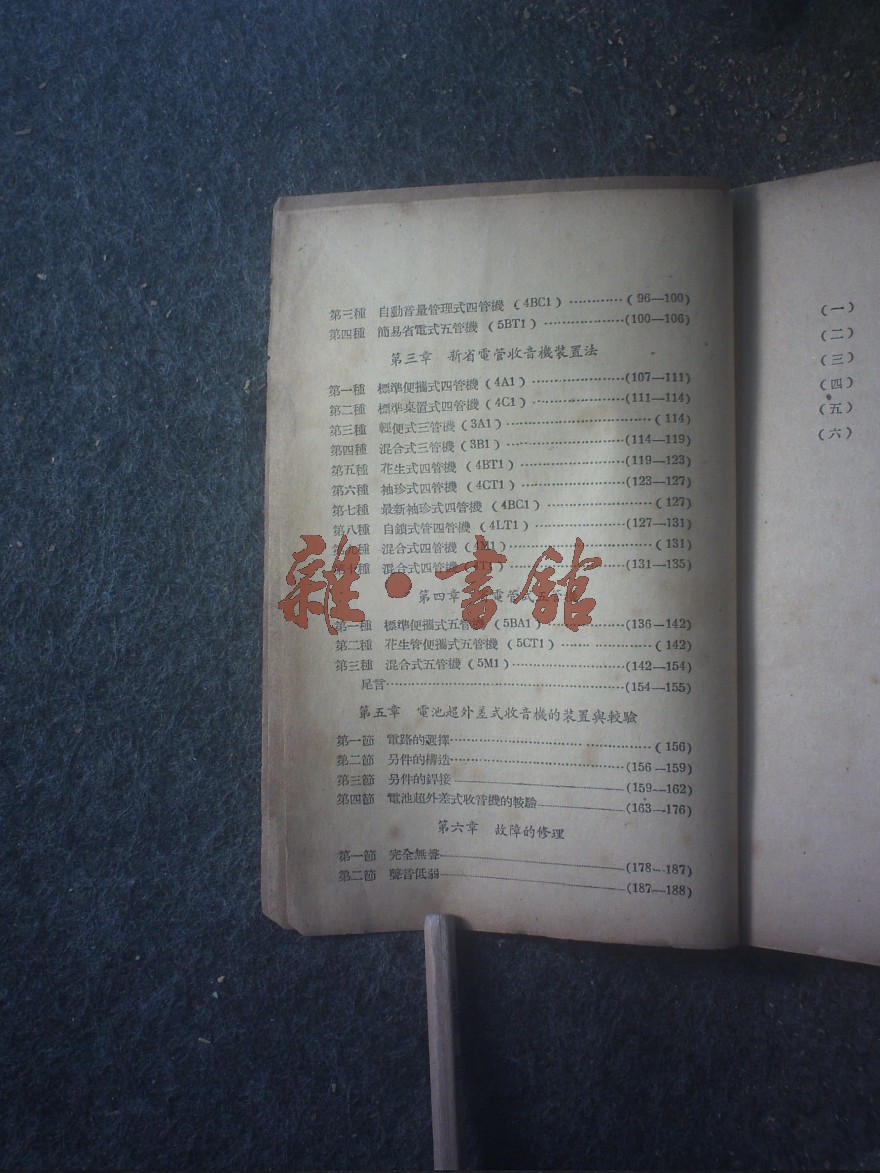 第三種 自動音量管理式四管機 (4BC1) ············( 96—100)
第四種 簡易省電式五管機 (5BT1) ··················(100—106)
第三章 新省電管收音機裝置法
第一種 標準便攜式四管機 (4A1) ····················(107—111)
第二種 標準桌置式四管機 (4C1) ····················(111—114)
第三種 輕便式三管機 (3A1) ··························( 114)
第四種 混合式三管機 (3B1) ··························(114—119)
第五種 花生式四管機 (4BT1) ························(119—123)
第六種 袖珍式四管機 (4CT1) ························(123—127)
第七種 最新袖珍式四管機 (4BC1) ··················( 127)
第八種 自鎖式管四管機 (4LT1) ····················(127—131)
第九種 混合式四管機 (4M1)··························( 131)
第十種 混合式四管機 ··························(131—135)
第四章 電管式五管
第一種 標準便攜式五管機 (5BA1) ················(136—142)
第二種 花生管便攜式五管機 (5CT1) ··············( 142)
第三種 混合式五管機 (5M1)··························(142—154)
尾言··························(154—155)
第五章 電池超外差式收音機的裝置與較驗
第一節 電路的選擇··························( 156)
第二節 另件的構造··························(156—159)
第三節 另件的銲接··························(159—162)
第四節 電池超外差式收音機的較驗··············(163—176)
第六章 故障的修理
第一節 完全無聲··························(178—187)
第二節 聲音低弱··························(187—188)
(一)
(二)
(三)
(四)
(五)
(六)
雜·書館